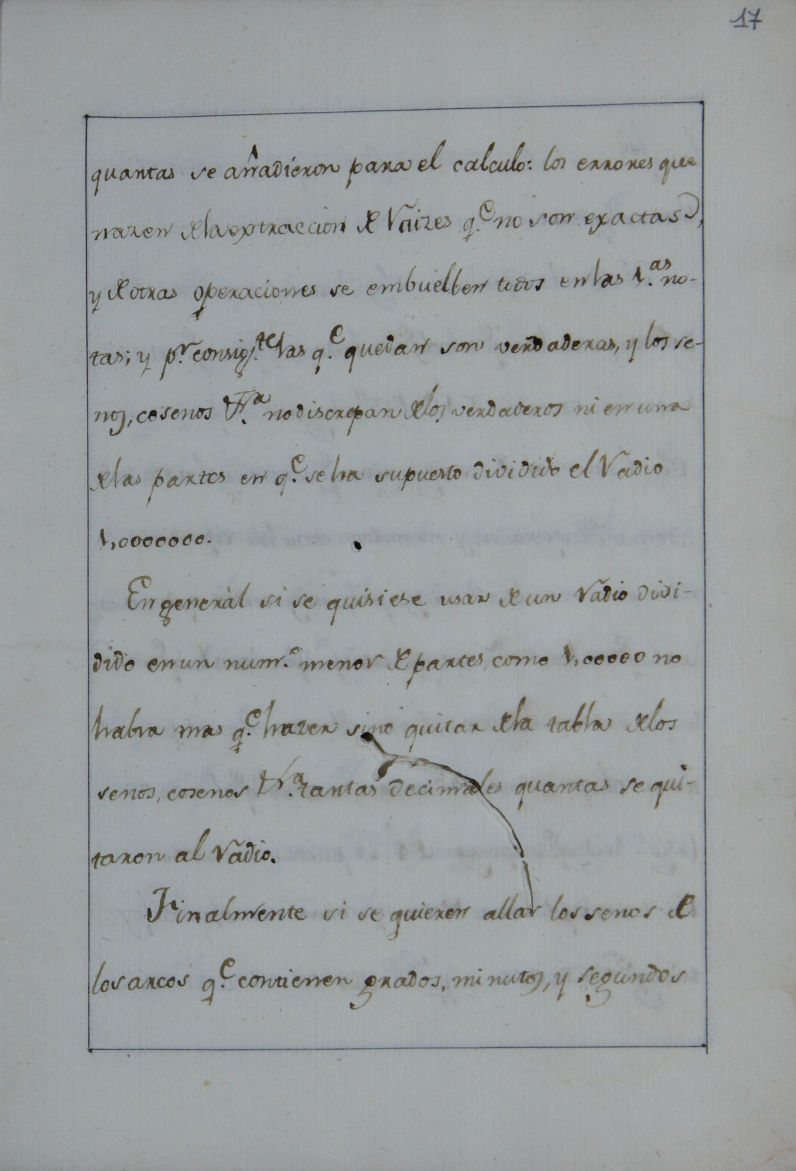 17
quantas se añadieron para el calculo: los errores que
nazen de la extraccion de Raizes q.e no son exactas,
y de otras operaciones se embuelben todos en las 1.as no-
tas; y p.r consig.te las q.e quedan son verdaderas, y los se-
nos, cosenos &.a no discrepan de los verdaderos ni en una
de las partes en q.e se ha supuesto dividido el Radio
1,0000000.
En general si se quisiese usar de un Radio divi-
dido en un num.o menor de partes, como 1,00000 no
habra mas q.e hazer sino quitar de la tabla de los
senos, cosenos &.a tantas decimales quantas se qui-
taron al Radio.
Finalmente si se quieren allar los senos de
los arcos q.e contienen grados, minutos, y segundos